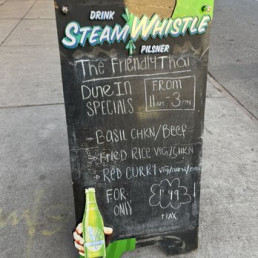 DRINK
STEAM WHISTLE
PILSNER
The Friendly Thai
Dine In
SPECIALS
FROM
11am - 3pm
- Basil CHKN/Beef
- Fried RICE VEG/CHKN
+ RED CURRY
FOR
ONLY
+TAX